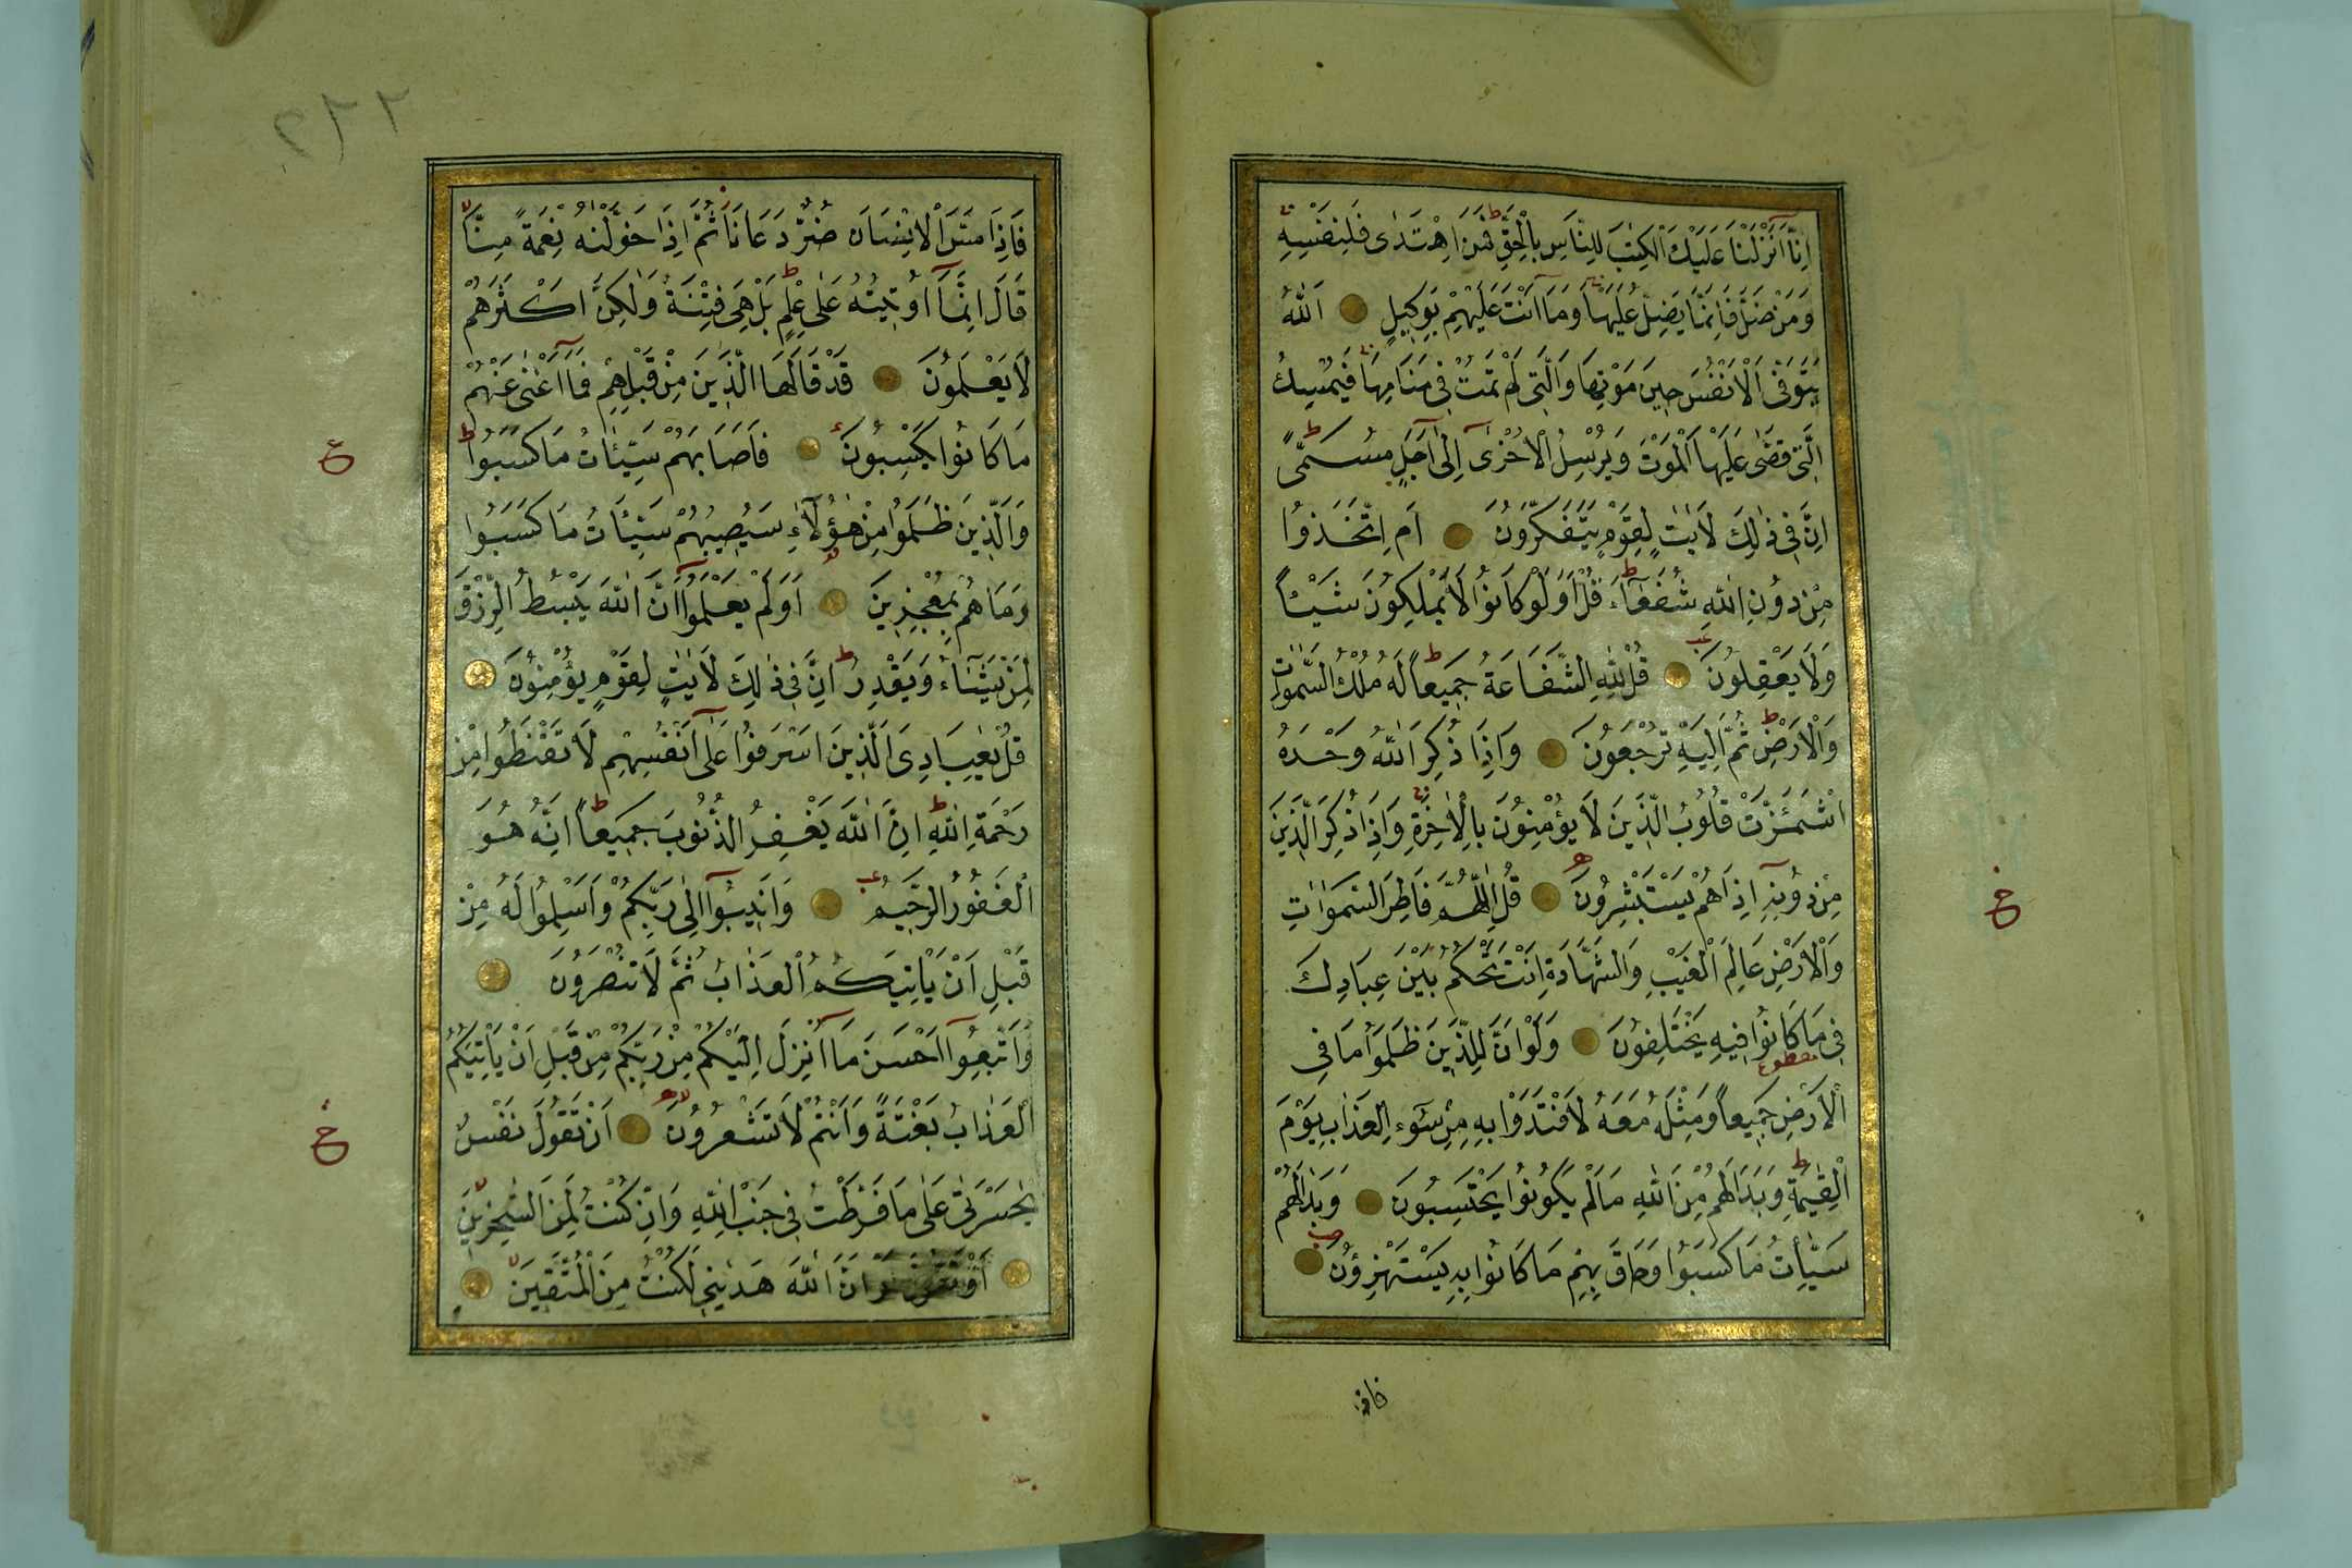 اِنَّا اَنْزَلْنَا عَلَيْكَ الْكِتٰبَ لِلنَّاسِ بِالْحَقِّ فَمَنِ اهْتَدٰى فَلِنَفْسِهِ
وَمَنْ ضَلَّ فَاِنَّمَا يَضِلُّ عَلَيْهَا وَمَا اَنْتَ عَلَيْهِمْ بِوَكِيلٍ اَللّٰهُ
يَتَوَفَّى الْاَنْفُسَ حِينَ مَوْتِهَا وَالَّتِى لَمْ تَمُتْ فِى مَنَامِهَا فَيُمْسِكُ
الَّتِى قَضٰى عَلَيْهَا الْمَوْتَ وَيُرْسِلُ الْاُخْرٰى اِلٰى اَجَلٍ مُسَمًّى
اِنَّ فِى ذٰلِكَ لَاٰيٰتٍ لِقَوْمٍ يَتَفَكَّرُونَ اَمِ اتَّخَذُوا
مِنْ دُونِ اللّٰهِ شُفَعَٓاءَ قُلْ اَوَلَوْ كَانُوا لَا يَمْلِكُونَ شَيْـًٔا
وَلَا يَعْقِلُونَ قُلْ لِلّٰهِ الشَّفَاعَةُ جَمِيعًا لَهُ مُلْكُ السَّمٰوَاتِ
وَالْاَرْضِ ثُمَّ اِلَيْهِ تُرْجَعُونَ وَاِذَا ذُكِرَ اللّٰهُ وَحْدَهُ
اشْمَـَٔزَّتْ قُلُوبُ الَّذِينَ لَا يُؤْمِنُونَ بِالْاٰخِرَةِ وَاِذَا ذُكِرَ الَّذِينَ
مِنْ دُونِهِ اِذَا هُمْ يَسْتَبْشِرُونَ قُلِ اللّٰهُمَّ فَاطِرَ السَّمٰوَاتِ
وَالْاَرْضِ عَالِمَ الْغَيْبِ وَالشَّهَادَةِ اَنْتَ تَحْكُمُ بَيْنَ عِبَادِكَ
فِى مَا كَانُوا فِيهِ يَخْتَلِفُونَ وَلَوْ اَنَّ لِلَّذِينَ ظَلَمُوا مَا فِى
الْاَرْضِ جَمِيعًا وَمِثْلَهُ مَعَهُ لَافْتَدَوْا بِهِ مِنْ سُٓوءِ الْعَذَابِ يَوْمَ
الْقِيٰمَةِ وَبَدَا لَهُمْ مِنَ اللّٰهِ مَا لَمْ يَكُونُوا يَحْتَسِبُونَ وَبَدَا لَهُمْ
سَيِّـَٔاتُ مَا كَسَبُوا وَحَاقَ بِهِمْ مَا كَانُوا بِهِ يَسْتَهْزِؤُنَ
فاذا
ع
فَاِذَا مَسَّ الْاِنْسَانَ ضُرٌّ دَعَانَا ثُمَّ اِذَا خَوَّلْنٰهُ نِعْمَةً مِنَّا
قَالَ اِنَّمَا اُوتِيتُهُ عَلٰى عِلْمٍ بَلْ هِىَ فِتْنَةٌ وَلٰكِنَّ اَكْثَرَهُمْ
لَا يَعْلَمُونَ قَدْ قَالَهَا الَّذِينَ مِنْ قَبْلِهِمْ فَمَا اَغْنٰى عَنْهُمْ
مَا كَانُوا يَكْسِبُونَ فَاَصَابَهُمْ سَيِّـَٔاتُ مَا كَسَبُوا
وَالَّذِينَ ظَلَمُوا مِنْ هٰؤُلَٓاءِ سَيُصِيبُهُمْ سَيِّـَٔاتُ مَا كَسَبُوا
وَمَا هُمْ بِمُعْجِزِينَ اَوَلَمْ يَعْلَمُوا اَنَّ اللّٰهَ يَبْسُطُ الرِّزْقَ
لِمَنْ يَشَٓاءُ وَيَقْدِرُ اِنَّ فِى ذٰلِكَ لَاٰيٰتٍ لِقَوْمٍ يُؤْمِنُونَ
قُلْ يٰعِبَادِىَ الَّذِينَ اَسْرَفُوا عَلٰى اَنْفُسِهِمْ لَا تَقْنَطُوا مِنْ
رَحْمَةِ اللّٰهِ اِنَّ اللّٰهَ يَغْفِرُ الذُّنُوبَ جَمِيعًا اِنَّهُ هُوَ
الْغَفُورُ الرَّحِيمُ وَاَنِيبُوا اِلٰى رَبِّكُمْ وَاَسْلِمُوا لَهُ مِنْ
قَبْلِ اَنْ يَاْتِيَكُمُ الْعَذَابُ ثُمَّ لَا تُنْصَرُونَ
وَاتَّبِعُوا اَحْسَنَ مَا اُنْزِلَ اِلَيْكُمْ مِنْ رَبِّكُمْ مِنْ قَبْلِ اَنْ يَاْتِيَكُمُ
الْعَذَابُ بَغْتَةً وَاَنْتُمْ لَا تَشْعُرُونَ اَنْ تَقُولَ نَفْسٌ
يٰحَسْرَتٰى عَلٰى مَا فَرَّطْتُ فِى جَنْبِ اللّٰهِ وَاِنْ كُنْتُ لَمِنَ السّٰخِرِينَ
اَوْ تَقُولَ لَوْ اَنَّ اللّٰهَ هَدٰينِى لَكُنْتُ مِنَ الْمُتَّقِينَ